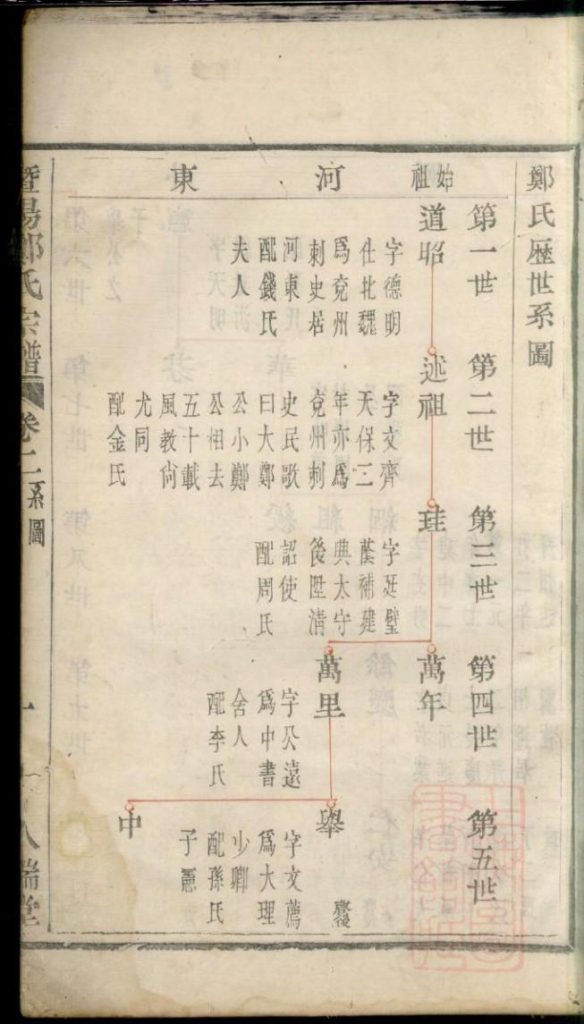 鄭氏歷世系圖
第一世
第二世
第三世
第四世
第五世
始祖
河
東
道昭
字德明
仕北魏
爲兗州
刺史居
河東
配錢氏
夫人
述祖
字文齊
天保三
年亦爲
兗州刺
史民歌
曰大鄭
公小鄭
公相去
五十載
風教尙
尤同
配金氏
珪
字廷璧
蔭補建
典太守
後陞淸
詔使
配周氏
萬年
萬里
字公遠
爲中書
舍人
配李氏
舉
中
字文薦
爲大理
少卿
配孫氏
子憲
暨陽鄭氏宗譜
卷二
系圖
一
人瑞堂